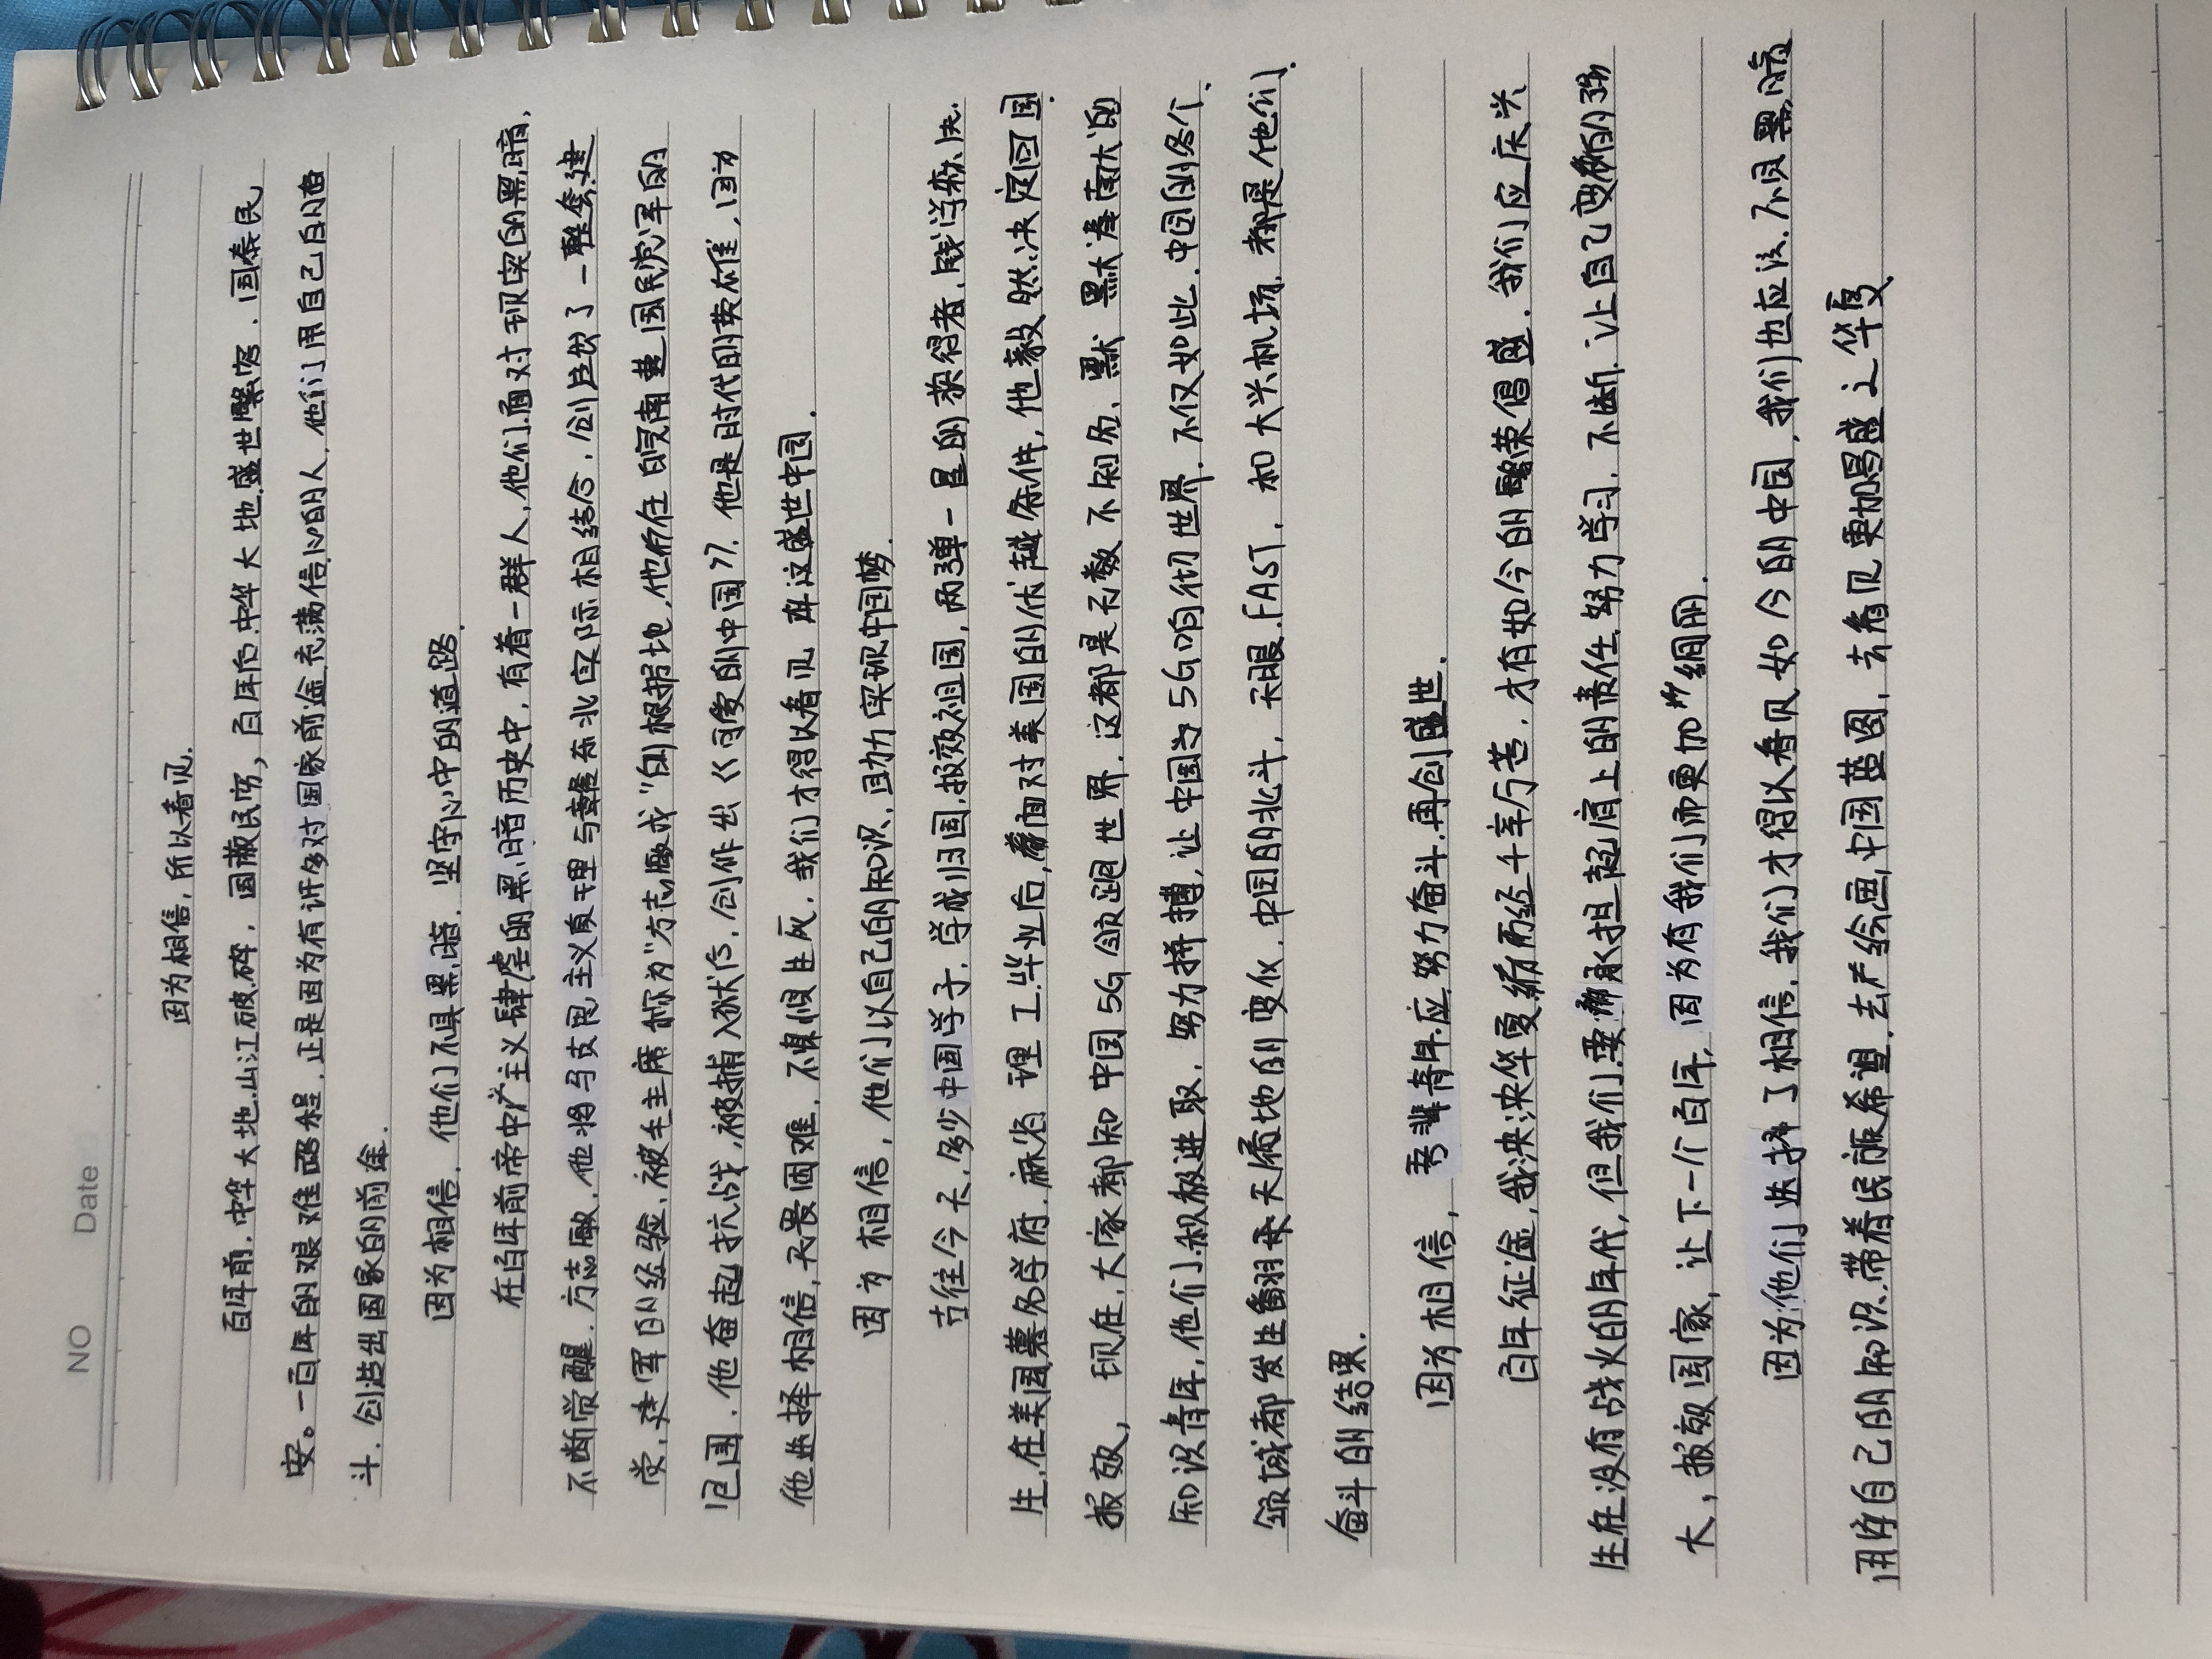 NO
Date
因为相信，所以看见.
百年前.中华大地.山江破碎，国敝民穷，百年后.中华大地盛世繁容.国泰民
安。一百年的艰难历程.正是因为有许多对国家前途充满信心的人，他们用自己的奋
斗.创造出国家的前途.
因为相信.他们不惧黑暗.坚守心中的道路.
在百年前帝中产主义肆虐的黑暗历史中，有着一群人，他们面对现实的黑暗，
不断觉醒.方志敏.他将马克思主义真理与赣东北实际相结合，创造性做了一整套建
党.建军的经验.被毛主席称为"方志敏式"的根据地.他在皖南遭国民党军的
包围.他奋起抗战，被捕入狱后.创作出《可爱的中国》.他是时代的英雄，因为
他选择相信，无畏困难.不惧生死.我们才得以看见 在这盛世中国.
因为相信，他们以自己的知识.助力实现中国梦.
古往今天.多少中国学子.学成归国.报效祖国，两弹一星的获得者.钱学森先.
生.在美国著名学府.麻省理工.毕业后，面对美国的优越条件，他毅然决定回国.
报效，现在，大家都知中国5G领跑世界.这都是无数不知名、默默奉献的
知识青年，他们积极进取.努力拼搏，让中国的5G响彻世界.不仅如此.中国的各个.
领域都发生翻天覆地的变化.中国的北斗，天眼.FAST，和大兴机场.都是他们.
奋斗的结果.
因为相信，吾辈青年.应努力奋斗.再创盛世.
百年征途，我泱泱华夏历经千辛万苦，才有如今的繁荣倡盛.我们应庆兴
生在没有战火的年代，但我们要承担起肩上的责任.努力学习，不断.让自己变的强
大，报效国家，让下一个百年，因为有我们而更加绚丽.
因为他们选择了相信，我们才得以看见如今的中国，我们也应该.不惧黑暗
用自己的知识.带着民族希望.去绘画中国蓝图，去看见更加昌盛之华夏